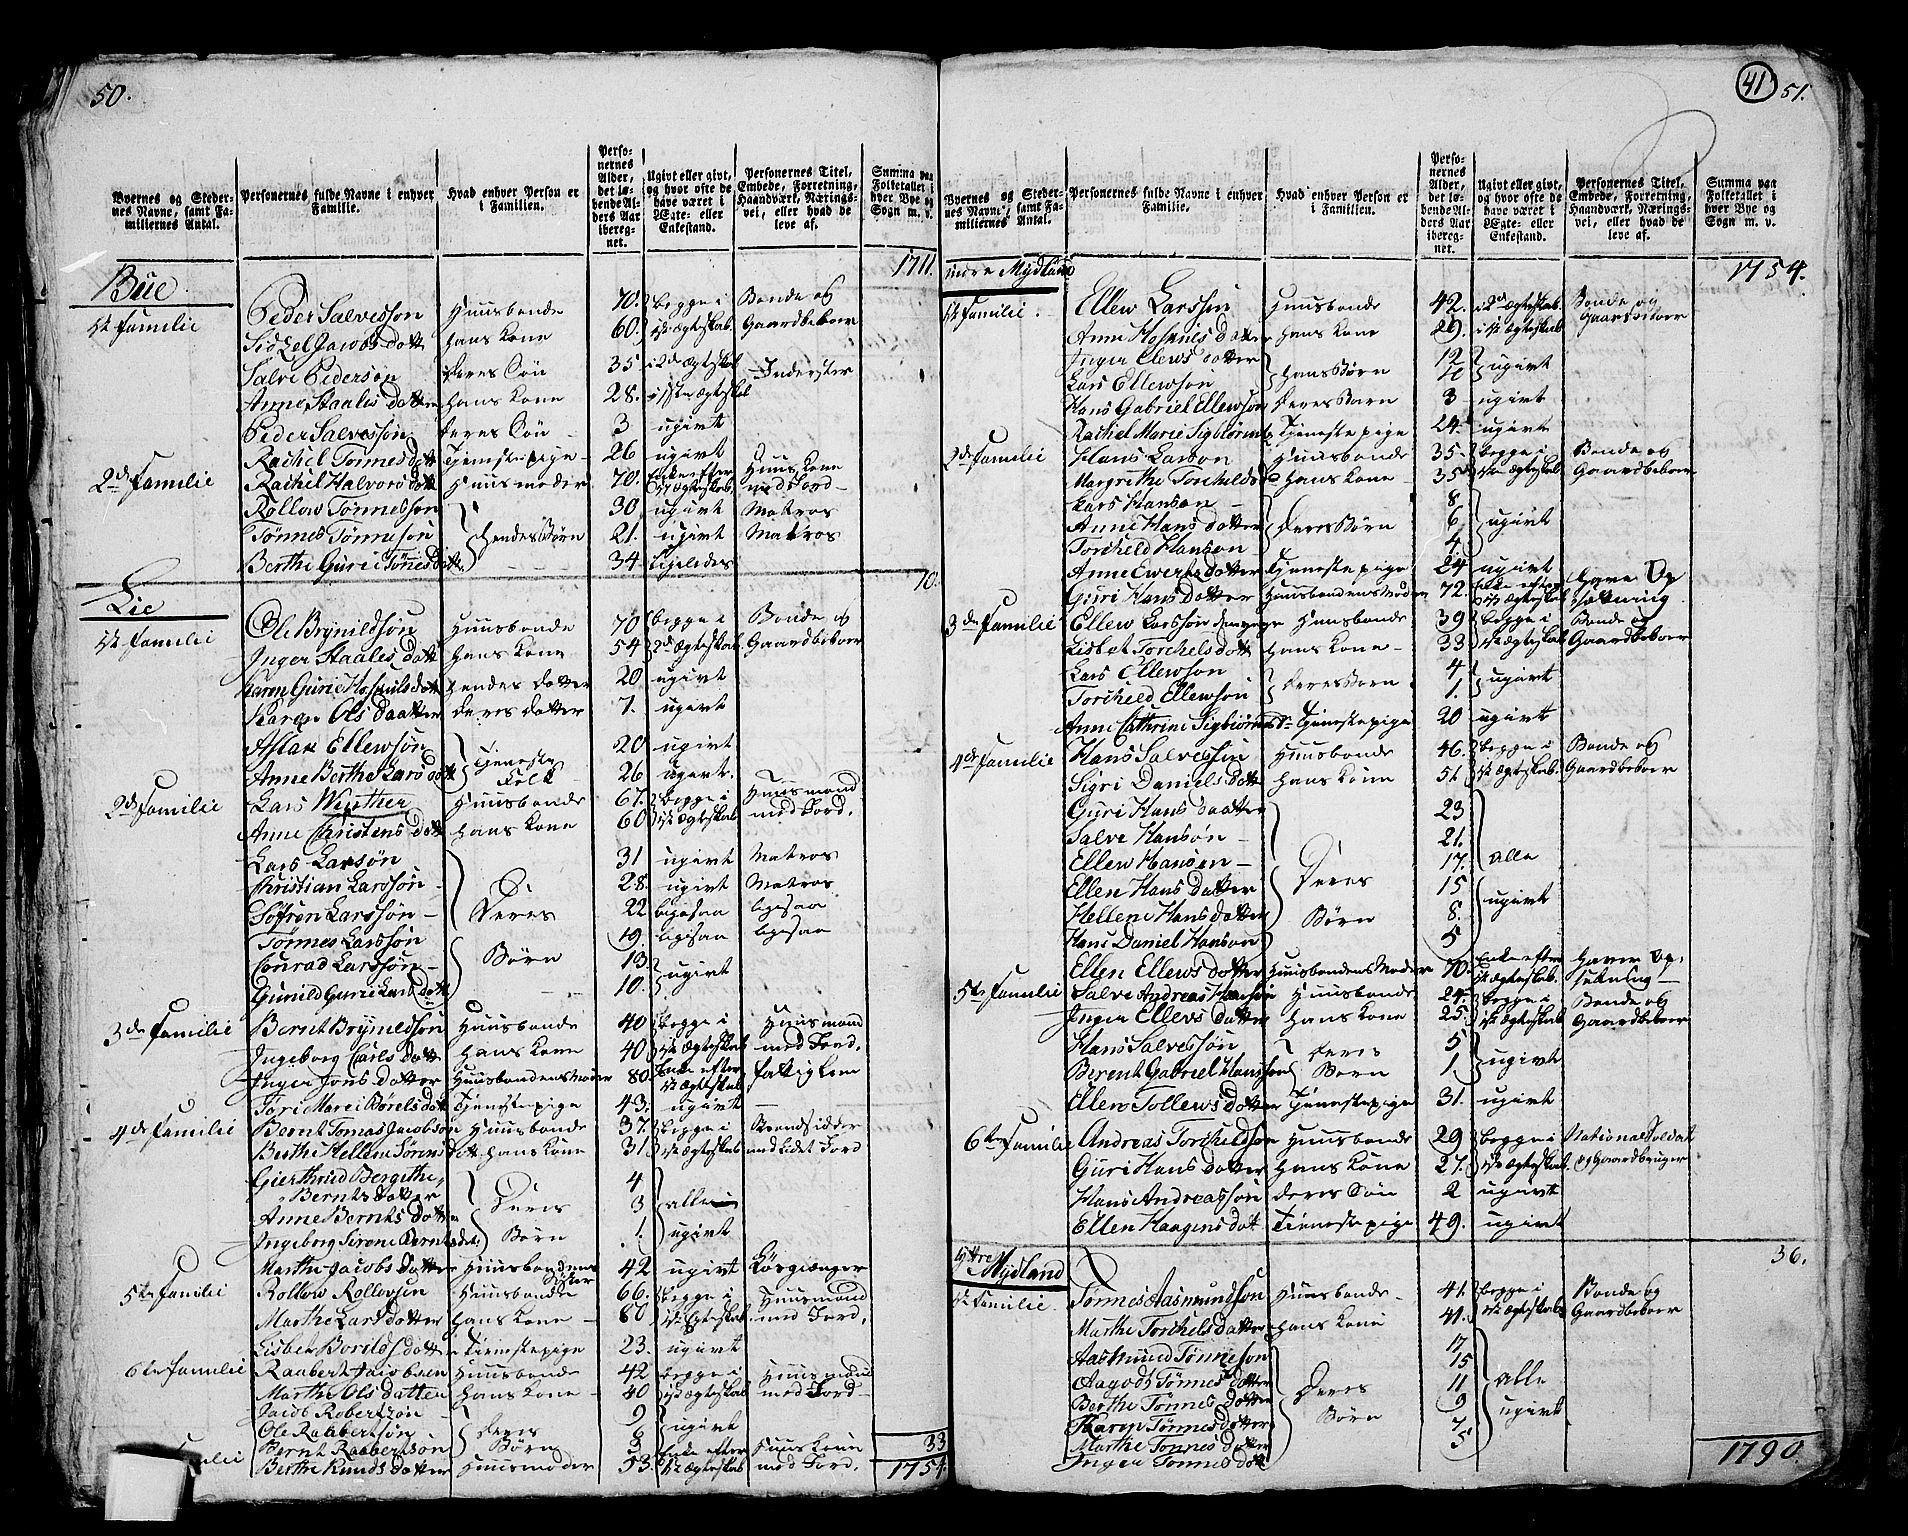 50.
Byernes og Stedernes Navne, samt Familiernes Antal.
Personernes fulde Navne i enhver Familie.
Hvad enhver Person er i Familien.
Personernes Alder, det løbende Alders Aar iberegnet.
Ugivt eller givt, og hvor ofte de have været i Ægte- eller Enkestand.
Personernes Titel, Embede, Forretning, Haandværk, Næringsvei, eller hvad de leve af.
Summa paa Folketallet i hver Bye og Sogn m. v.
1711.
Büe.
1st Familie Peder Salvessøn Huusbonde 70. begge i Bonde og
Sidzel Jacobs dotter hans Kone 60. 1st ægteskab. Gaardbeboer
Salve Pedersøn deres Søn 35 i 2d ægteskab Inderster
Anne Staales dotter hans Kone 28. i 1ste ægteskab
Peder Salvessøn deres Søn 3 ugivt
Rachel Tønnes dott Tjenestepige 26 ugivt
2d Familie Rachel Halvors dott Huusmoder 70. Enke efter 1st ægteskab. Huuskone med Jord
Rollow Tønnessøn 30 ugivt Matros
Tønnes Tønnesøn hendes Børn 21. ugivt Matros
Berthe Guri Tønnes dotter 34 ligeledes
10.
Lie
1st Familie Ole Brynildsøn Huusbonde 70 begge i Bonde og
Inger Staales dott hans Kone 54 2d ægteskab Gaardbeboer
Karen Gurie Hoskuls dott hendes dotter 20 ugivt
Karen Ols daatter deres dotter 7. ugivt
Aslak Ellewsøn Tjeneste 20 ugivt
Anne Berthe Lars dott Folk 26 ugivt.
2d Familie Lars Winther Huusbonde 67. begge i Huusmand
Anne Christens dott hans Kone 60 1st ægteskab med Jord.
Lars Larsøn 31 ugivt Matros
Christian Larssøn 28. ugivt Matros
Søfren Larssøn Deres 22 ligesaa ligesaa
Tønnes Larssøn 19. ligesaa ligesaa
Conrad Larssøn Børn 13 ugivt
Gunild Gurie Lars dott 10.
3de Familie Bernt Brynildsøn Huusbonde 40 begge i Huusmand
Ingeborg Carls dott hans Kone 40 1st ægteskab med Jord.
Inger Jons dotter Huusbondens Moder 80. Enke efter 1st ægteskab fattiglem
Tori Marei Børels dott Tjenestepige 43. ugivt
4de Familie Bernt Tomas Jacobsøn Huusbonde 37. begge i Strandsidder
Berthe Hellene Sørens dott. hans Kone 31 1st ægteskab med lidet Jord
Gierthrud Bergithe Bernts dotter 4
Anne Bernts dotter Deres 3 alle
Ingeborg Sirene Bernts dot. Børn 1. ugivt
Marthe Jacobs dotter Huusbondens Søster 42 ugivt
5te Familie Rollow Rollowsen Huusbonde 66. begge i Huusmand
Marthe Lars dotter hans Kone 60 1st Egteskab med Jord.
Lisbet Borilds dotter Tienestepige 23. ugivt
6te Familie Raabert Jacobsen Huusbonde 42 begge i Huusmand
Marthe Ols datter hans Kone 40 1st ægteskab med Jord
Jacob Robertsøn 9
Ole Raabertsøn Deres 6 ugivt
Bernt Raabertsøn Børn 3
Berthe Knuds dotter Huusmoder 53. Enke efter 1st ægteskab Huuskone med Jord.
33
1754.
41
51.
Byernes og Stedernes Navne, samt Familiernes Antal.
Personernes fulde Navne i enhver Familie.
Hvad enhver Person er i Familien.
Personernes Alder, det løbende Alders Aar iberegnet.
Ugivt eller givt, og hvor ofte de have været i Ægte- eller Enkestand.
Personernes Titel, Embede, Forretning, Haandværk, Næringsvei, eller hvad de leve af.
Summa paa Folketallet i hver Bye og Sogn m. v.
indre Mydland
1754.
1st Familie. Ellew Larssøn Huusbonde 42. i 2d ægteskab Bonde og
Anne Hoskuls dotter hans Kone 29. i 1st ægteskab Gaardbeboer
Inger Elews dotter 12
Lars Ellewsøn hans Børn 10 ugivt
Hans Gabriel Ellewsøn deres Barn 3 ugivt
Rachel Marie Sigbiørns Tjenestepige 24. ugivt
2de Familie Hans Larsøn Huusbonde 35. begge i Bonde og
Margrethe Torchelds hans Kone 35 1st ægteskab Gaardbeboer
Lars Hansøn 8
Anne Hans dotter deres Børn 6 ugivt
Torcheld Hansøn 4
Anne Ewerts dotter Tjenestepige 24 ugivt
Guri Hans dotter Huusbondens Moder 72. Enke efter 1st ægteskab have Opfostring
3de Familie Ellew Larssøn den yngre Huusbonde 39 begge i Bonde og
Lisbet Torchels dott hans Kone 33 1st ægteskab Gaardbeboer
Lars Ellewsøn 4
Torcheld Ellewsøn deres Børn 1. ugivt
Anne Cathrine Sigbiørns Dr Tjenestepige 20 ugivt
4de Familie Hans Salvessøn Huusbonde 46. begge i Bonde og
Sigri Daniels dott hans Kone 51. 1st ægteskab. Gaardbeboer
Guri Hans daatter 23
Salve Hansøn 21.
Ellew Hansen 17. alle
Ellen Hans dotter Deres 15
Hellene Hans dotter Børn 8. ugivt
Hans Daniel Hansøn 5
Ellen Ellews dotter Huusbondens Moder 70. Enke efter 1st ægteskab. haver Op
5te Familie Salve Andreas Hansøn Huusbonde 24. begge i Bonde og
Inger Ellevs dotter hans Kone 25. 1st ægteskab Gaardbeboer
Hans Salvessøn deres 5
Berent Gabriel Hanssøn Børn 1 ugivt
Ellen Tollews dotter Tjenestepige 31. ugivt
6te Familie Andreas Torcheldsøn Huusbonde 29 begge i National Soldat
Guri Hans dotter hans Kone 27. 1st ægteskab. og Gaardbruger
Hans Andreassøn deres Søn 2 ugivt
Ellen Haagens dot Tienestepige 49. ugivt
36.
ÿttre Mydland
1st Familie. Tønnes Aasmundsøn Huusbonde 41. begge i Bonde og
Marthe Torchels dotter hans Kone 41. 1st ægteskab Gaardbeboer
Aasmund Tønnesøn 17
Aagodt Tønnes dotter 15
Berthe Tønnes dotter Deres 11 alle
Karen Tønnes dotter Børn 9 ugivt
Marthe Tønnes dotter 7
Inger Tønnes dott 5
1790.